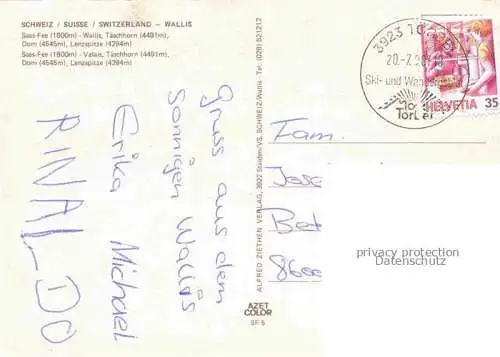 SCHWEIZ / SUISSE / SWITZERLAND — WALLIS
Saas-Fee (1800m) - Wallis, Täschhorn (4491m),
Dom (4545m), Lenzspitze (4294m)
Saas-Fee (1800m) - Valais, Täschhorn (4491m),
Dom (4545m), Lenzspitze (4294m)
Gruss aus dem
Sonnigen Wallis
Erika Michael
RINALDO
ALFRED ZIETHEN VERLAG, 3922 Stalden/VS, SCHWEIZ/Suisse, Tel. (028) 521212
AZET
COLOR
SF 5
3923
20.-7.
Ski- und
HELVETIA 35
Fam.
Jose
Bet
8600
privacy protection
Datenschutz